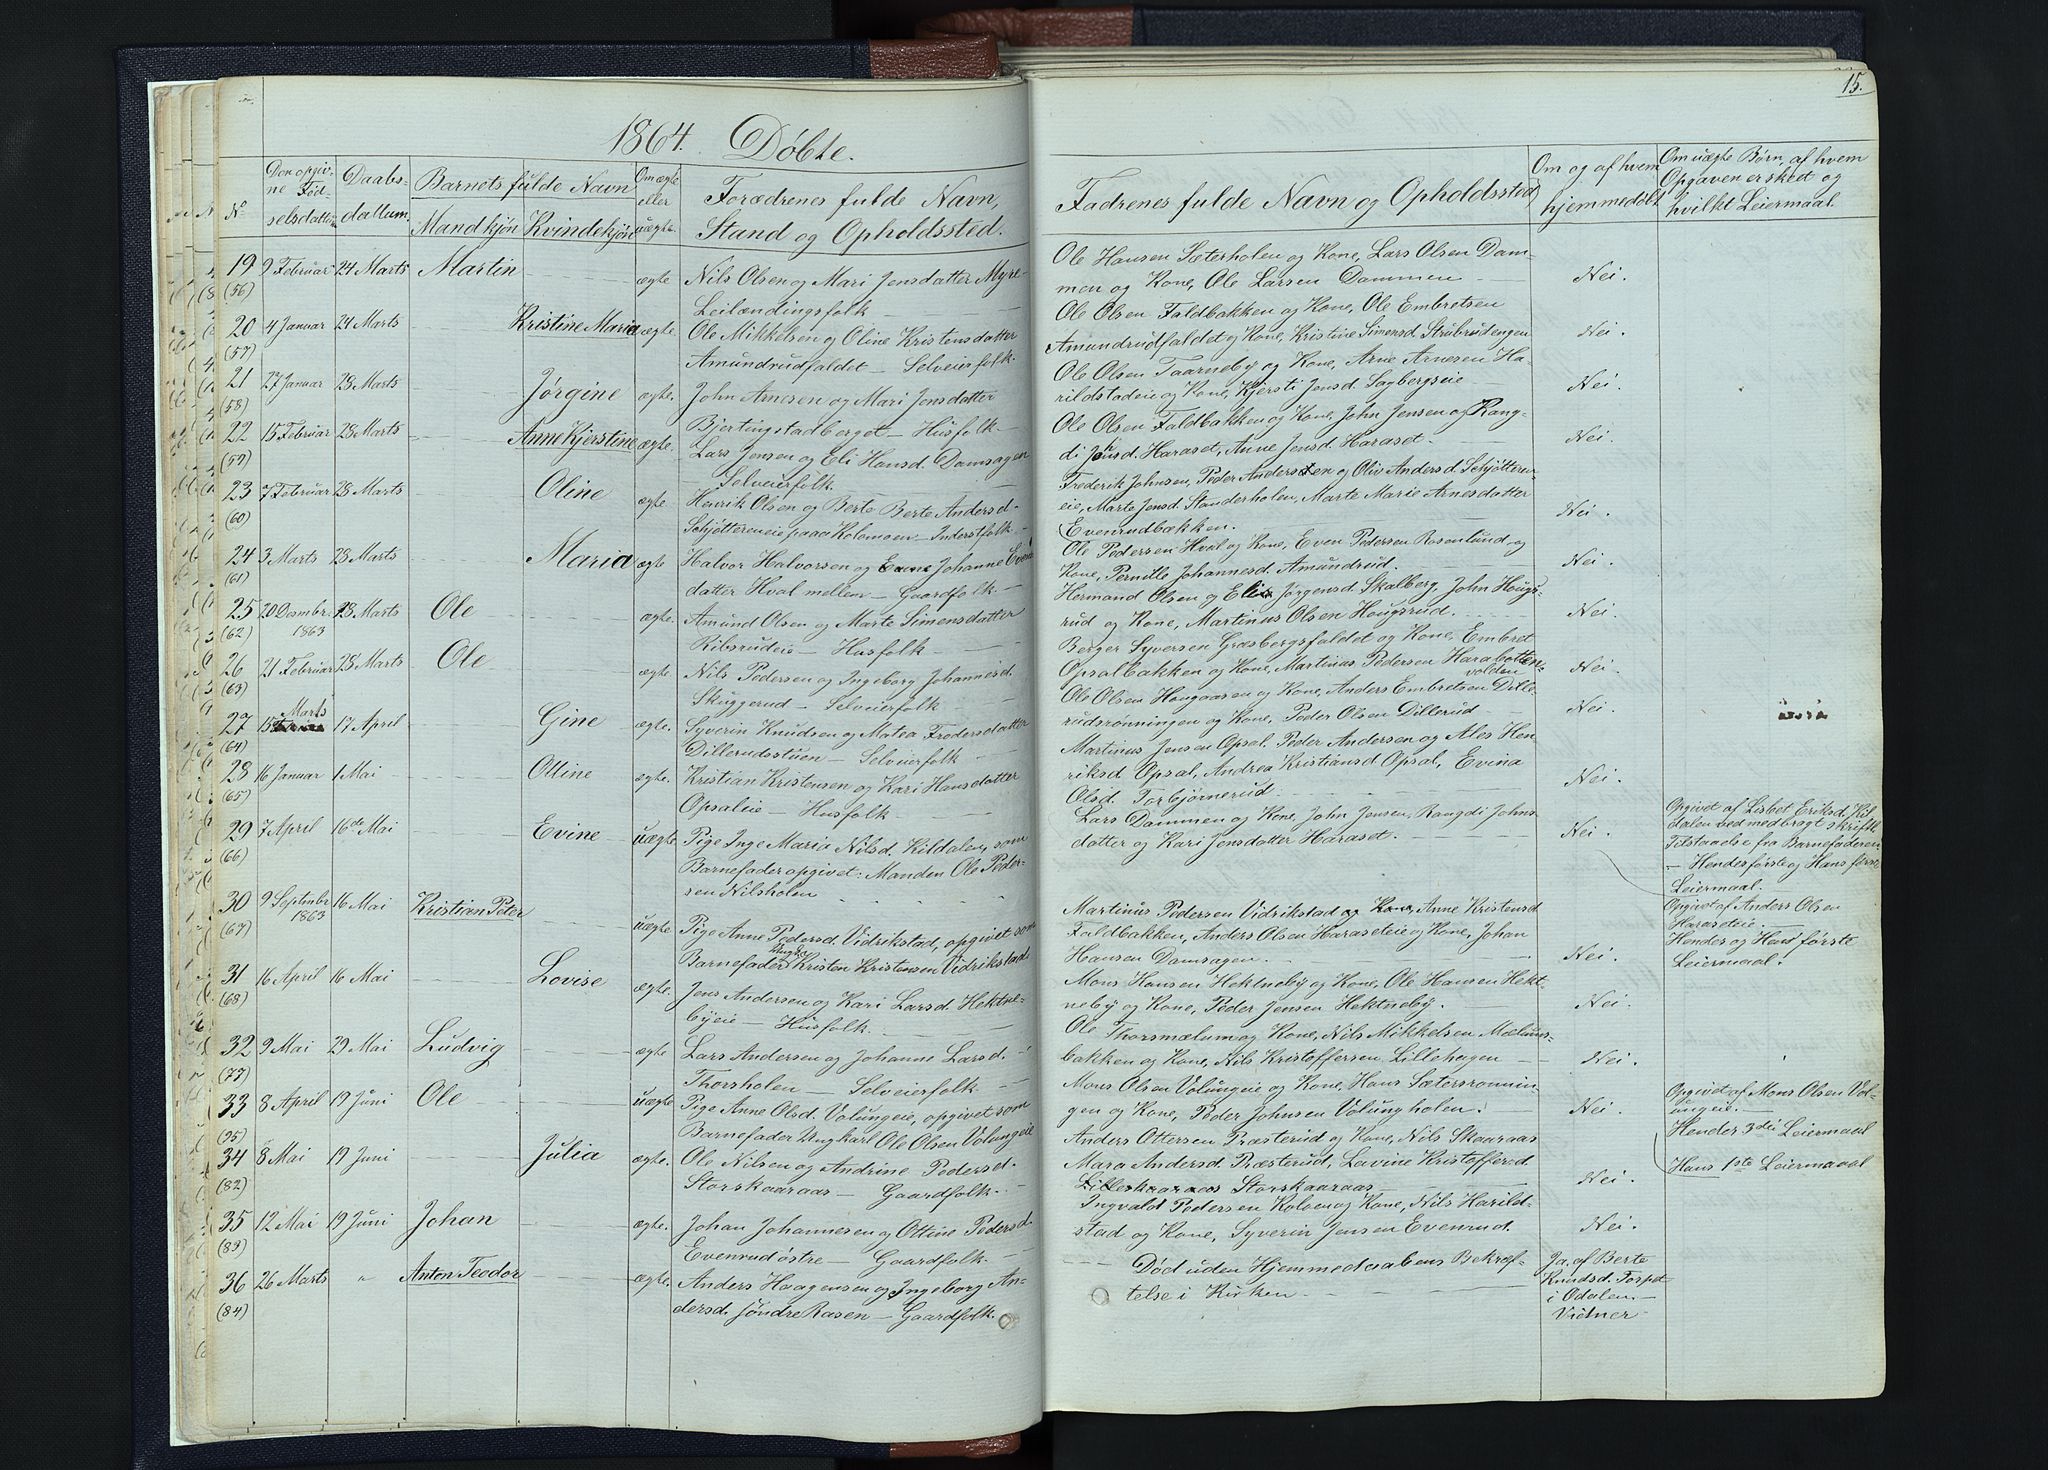 1864. Døbte.
15.
No
Den opgivne Fødselsdatum
Daabsdattum.
Barnets fulde Navn
Mandkjøn
Kvindekjøn
Om ægte eller uægte.
Forældrenes fulde Navn, Stand og Opholdssted.
Fadrenes fulde Navn og Opholdssted
Om og af hvem hjemmedøbt
Om uægte Børn, af hvem Opgaven er skeet og hvilket Leiermaal.
19 (56) 9 Februar 24 Marts Martin ægte
Nils Olsen og Mari Jensdatter Myre-
Leilændingsfolk
Ole Hansen Sæterholen og Kone, Lars Olsen Dam-
men og Kone, Ole Larsen Dammen
Nei.
20 (57) 4 Januar 24 Marts Kristine Maria ægte.
Ole Mikkelsen og Oline Kristensdatter
Amundrudfaldet – Selveierfolk.
Ole Olsen Faldbakken og Kone, Ole Embretsen
Amundrudfaldet og Kone, Kristine Simensd. Strubrudengen
Nei.
21 (58) 27 Januar 28 Marts Jørgine ægte.
John Arnesen og Mari Jensdatter
Bjertingstadberget – Husfolk
Ole Olsen Taarneby og Kone, Arne Arnesen Ha-
rildstadeie og Kone, Kjersti Jensd. Sagbergseie
Nei.
22 (59) 15 Februar 28 Marts Anne Kjerstine ægte.
Lars Jensen og Eli Hansd. Damsagen
Selveierfolk
Ole Olsen Faldbakken og Kone, John Jensen og Rang-
di Johnsd. Haraset, Anne Jensd. Haraset.
Nei.
23 (60) 7 Februar 28 Marts Oline ægte.
Henrik Olsen og Berte Berte Andersd.
Schjøtteneie paaa Kolomoen – Inderstfolk
Frederik Johnsen, Peder Andersen og Oliv Andersd. Schjøtten-
eie, Marte Jensd. Standerholen, Marte Marie Arnesdatter
Evenrudbækken.
Nei.
24 (61) 3 Marts 28 Marts Maria ægte
Halvor Halvorsen og Johanne Evens
datter Hval mellem – Gaardfolk.
Ole Pedersen Hval og Kone, Even Pedersen Rosenlund, og
Kone, Pernille Johannesd. Amundrud.
Nei.
25 (62) 20 Dcembr. 1863 28 Marts Ole ægte.
Amund Olsen og Marte Simensdatter
Ribsrudeie – Husfolk
Hermand Olsen og Jørgensd. Skalberg, John Hougs-
rud og Kone, Martinus Olsen Hougsrud.
Nei.
26 (63) 21 Februar 28 Marts Ole ægte.
Nils Pedersen og Ingeborg Johannesd.
Skuggerud – Selveierfolk
Berger Syversen Græsbergsfaldet og Kone, Embret
Opsalbakken og Kone, Martinus Pedersen Harabotten-
volden
Nei.
27 (64) 15 Marts 17 April Gine ægte.
Syverin Knudsen og Matea Frodersdatter
Dillerudsstuen – Selveierfolk
Ole Olsen Haugaasen og Kone, Anders Embretsen Dille
rudsrønningen og Kone, Peder Olsen Dillerud
Nei.
28 (65) 16 Januar 1 Mai Ottine ægte.
Kristian Kristensen og Kari Hansdatter
Opsaleie – Husfolk
Martinus Jensen Opsal, Peder Andersen og Ales Hen
riksd. Opsal, Andrea Kristiansd Opsal, Evina
Olsd. Torbjørnerud.
Nei.
29 (66) 7 April 16de Mai Evine uægte
Pige Inge Maria Nilsd. Kildalen, som
Barnefader opgivet: Manden Ole Peder-
sen Nilsholen
Lars Dammen og Kone, John Jensen, Rangdi Johns
datter og Kari Jensdatter Haraset.
Nei.
Opgivet af Lisbet Eriksd. Kil
dalen ved medbragt skriftl.
Tilstaaelse fra Barnefaderen
– Hendes første og Hans første
Leiermaal.
30 (67) 9 Septembr 1863 16 Mai Kristian Peter uægte
Pige Anne Pedersd. Vidrikstad, opgivet som
Barnefader Kristen Kristensen Vidrikstad
Martinus Pedersen Vidrikstad og Kone, Anne Kristensd
Faldbakken, Anders Olsen Haraseteie og Kone, Johan
Hansen Damsagen.
Nei.
Opgivet af Anders Olsen
Haraseteie.
Hendes og Hans første
Leiermaal.
31 (68) 16 April 16 Mai Lovise ægte.
Jens Andersen og Kari Larsd. Hektne-
byeie – Husfolk.
Mons Hansen Hektneby og Kone, Ole Hansen Hekt
neby og Kone, Peder Jensen Hektneby.
Nei.
32 (77) 9 Mai 29 Mai Ludvig ægte
Lars Andersen og Johanne Larsd.
Thorsholen – Selveierfolk
Ole Thorsmælum og Kone, Nils Mikkelsen Mælums-
bakken og Kone, Nils Kristoffersen Lillehagen
Nei.
33 (95) 8 April 19 Juni Ole uægte
Pige Anne Olsd. Volungeie, opgivet som
Barnefader Ungkarl Ole Olsen Volungeie
Mons Olsen Volungeie og Kone, Hans Sætersrønnin-
gen og Kone, Peder Johnsen Volungholen.
Nei.
Opgivet af Mons Olsen Vol-
ungeie.
Hendes 3die Leiermaal
Hans 1ste Leiermaal
34 (82) 8 Mai 19 Juni Julia ægte.
Ole Nilsen og Andrine Pedersd.
Storskaaraas – Gaardfolk.
Anders Ottersen Præsterud og Kone, Nils Skaaraas
Mara Andersd. Præsterud, Lovine Kristoffersd.
Lilleskaaraas Storskaaraas
Nei.
35 (83) 12 Mai 19 Juni Johan ægte.
Johan Johannesen og Ottine Pedersd.
Evenrud østre – Gaardfolk.
Ingvald Pedersen Kolven og Kone, Nils Harild-
stad og Kone, Syverin Jensen Evenrud.
Nei.
36 (84) 26 Marts " Anton Teodor ægte.
Anders Haagensen og Ingeborg An-
dersd. søndre Rasen – Gaardfolk.
Død uden Hjemmedaabens Bekræf-
telse i Kirken
Ja, af Berte
Knudsd. Torpet
i Odalen.
Vidner